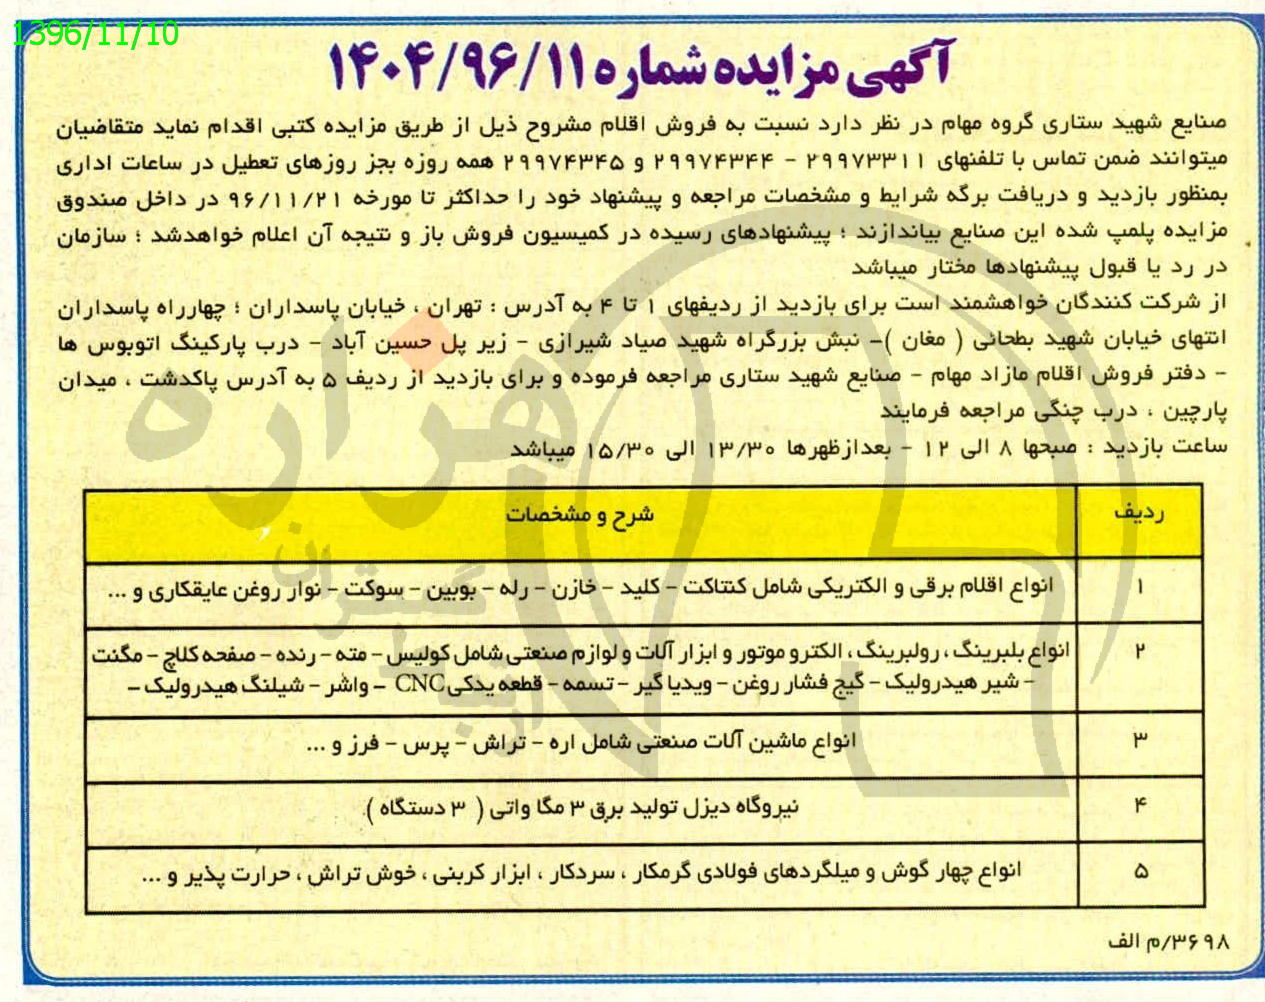 1396/11/10
آگهی مزایده شماره ۱۴۰۴/۹۶/۱۱
صنایع شهید ستاری گروه مهام در نظر دارد نسبت به فروش اقلام مشروح ذیل از طریق مزایده کتبی اقدام نماید متقاضیان
میتوانند ضمن تماس با تلفنهای ۲۹۹۷۳۳۱۱ - ۲۹۹۷۴۳۴۴ و ۲۹۹۷۴۳۴۵ همه روزه بجز روزهای تعطیل در ساعات اداری
بمنظور بازدید و دریافت برگه شرایط و مشخصات مراجعه و پیشنهاد خود را حداکثر تا مورخه ۹۶/۱۱/۲۱ در داخل صندوق
مزایده پلمپ شده این صنایع بیاندازند ؛ پیشنهادهای رسیده در کمیسیون فروش باز و نتیجه آن اعلام خواهدشد ؛ سازمان
در رد یا قبول پیشنهادها مختار میباشد
از شرکت کنندگان خواهشمند است برای بازدید از ردیفهای ۱ تا ۴ به آدرس : تهران ، خیابان پاسداران ؛ چهارراه پاسداران
انتهای خیابان شهید بطحائی ( مغان )- نبش بزرگراه شهید صیاد شیرازی - زیر پل حسین آباد - درب پارکینگ اتوبوس ها
- دفتر فروش اقلام مازاد مهام - صنایع شهید ستاری مراجعه فرموده و برای بازدید از ردیف ۵ به آدرس پاکدشت ، میدان
پارچین ، درب چنگی مراجعه فرمایند
ساعت بازدید : صبحها ۸ الی ۱۲ - بعدازظهرها ۱۳/۳۰ الی ۱۵/۳۰ میباشد
ردیف شرح و مشخصات
۱ انواع اقلام برقی و الکتریکی شامل کنتاکت - کلید - خازن - رله - بوبین - سوکت - نوار روغن عایقکاری و ...
۲ انواع بلبرینگ ، رولبرینگ ، الکترو موتور و ابزار آلات و لوازم صنعتی شامل کولیس - مته - رنده - صفحه کلاچ - مگنت
- شیر هیدرولیک - گیج فشار روغن - ویدیا گیر - تسمه - قطعه یدکی CNC - واشر - شیلنگ هیدرولیک -
۳ انواع ماشین آلات صنعتی شامل اره - تراش - پرس - فرز و ...
۴ نیروگاه دیزل تولید برق ۳ مگا واتی ( ۳ دستگاه )
۵ انواع چهار گوش و میلگردهای فولادی گرمکار ، سردکار ، ابزار کربنی ، خوش تراش ، حرارت پذیر و ...
۳۶۹۸/م الف
هزاره